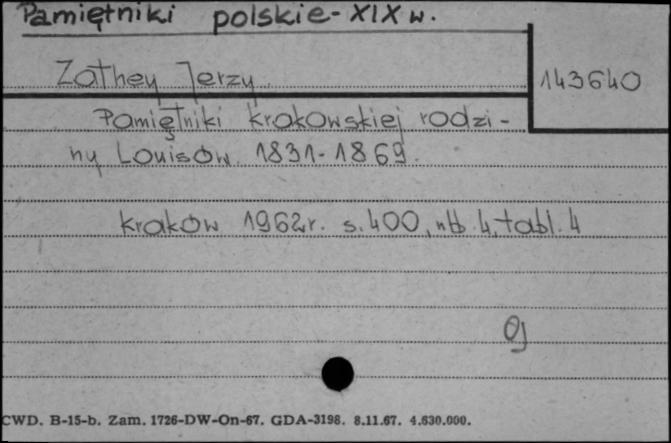 Pamiętniki polskie - XIX w.
Zathey Jerzy
143640
Pamiętniki krakowskiej rodzi-
ny Louisów 1831-1869.
Kraków 1962r. s. 400, nlb 4, tabl. 4
CWD. B-15-b. Zam. 1726-DW-On-67. GDA-3198. 8.11.67. 4.630.000.